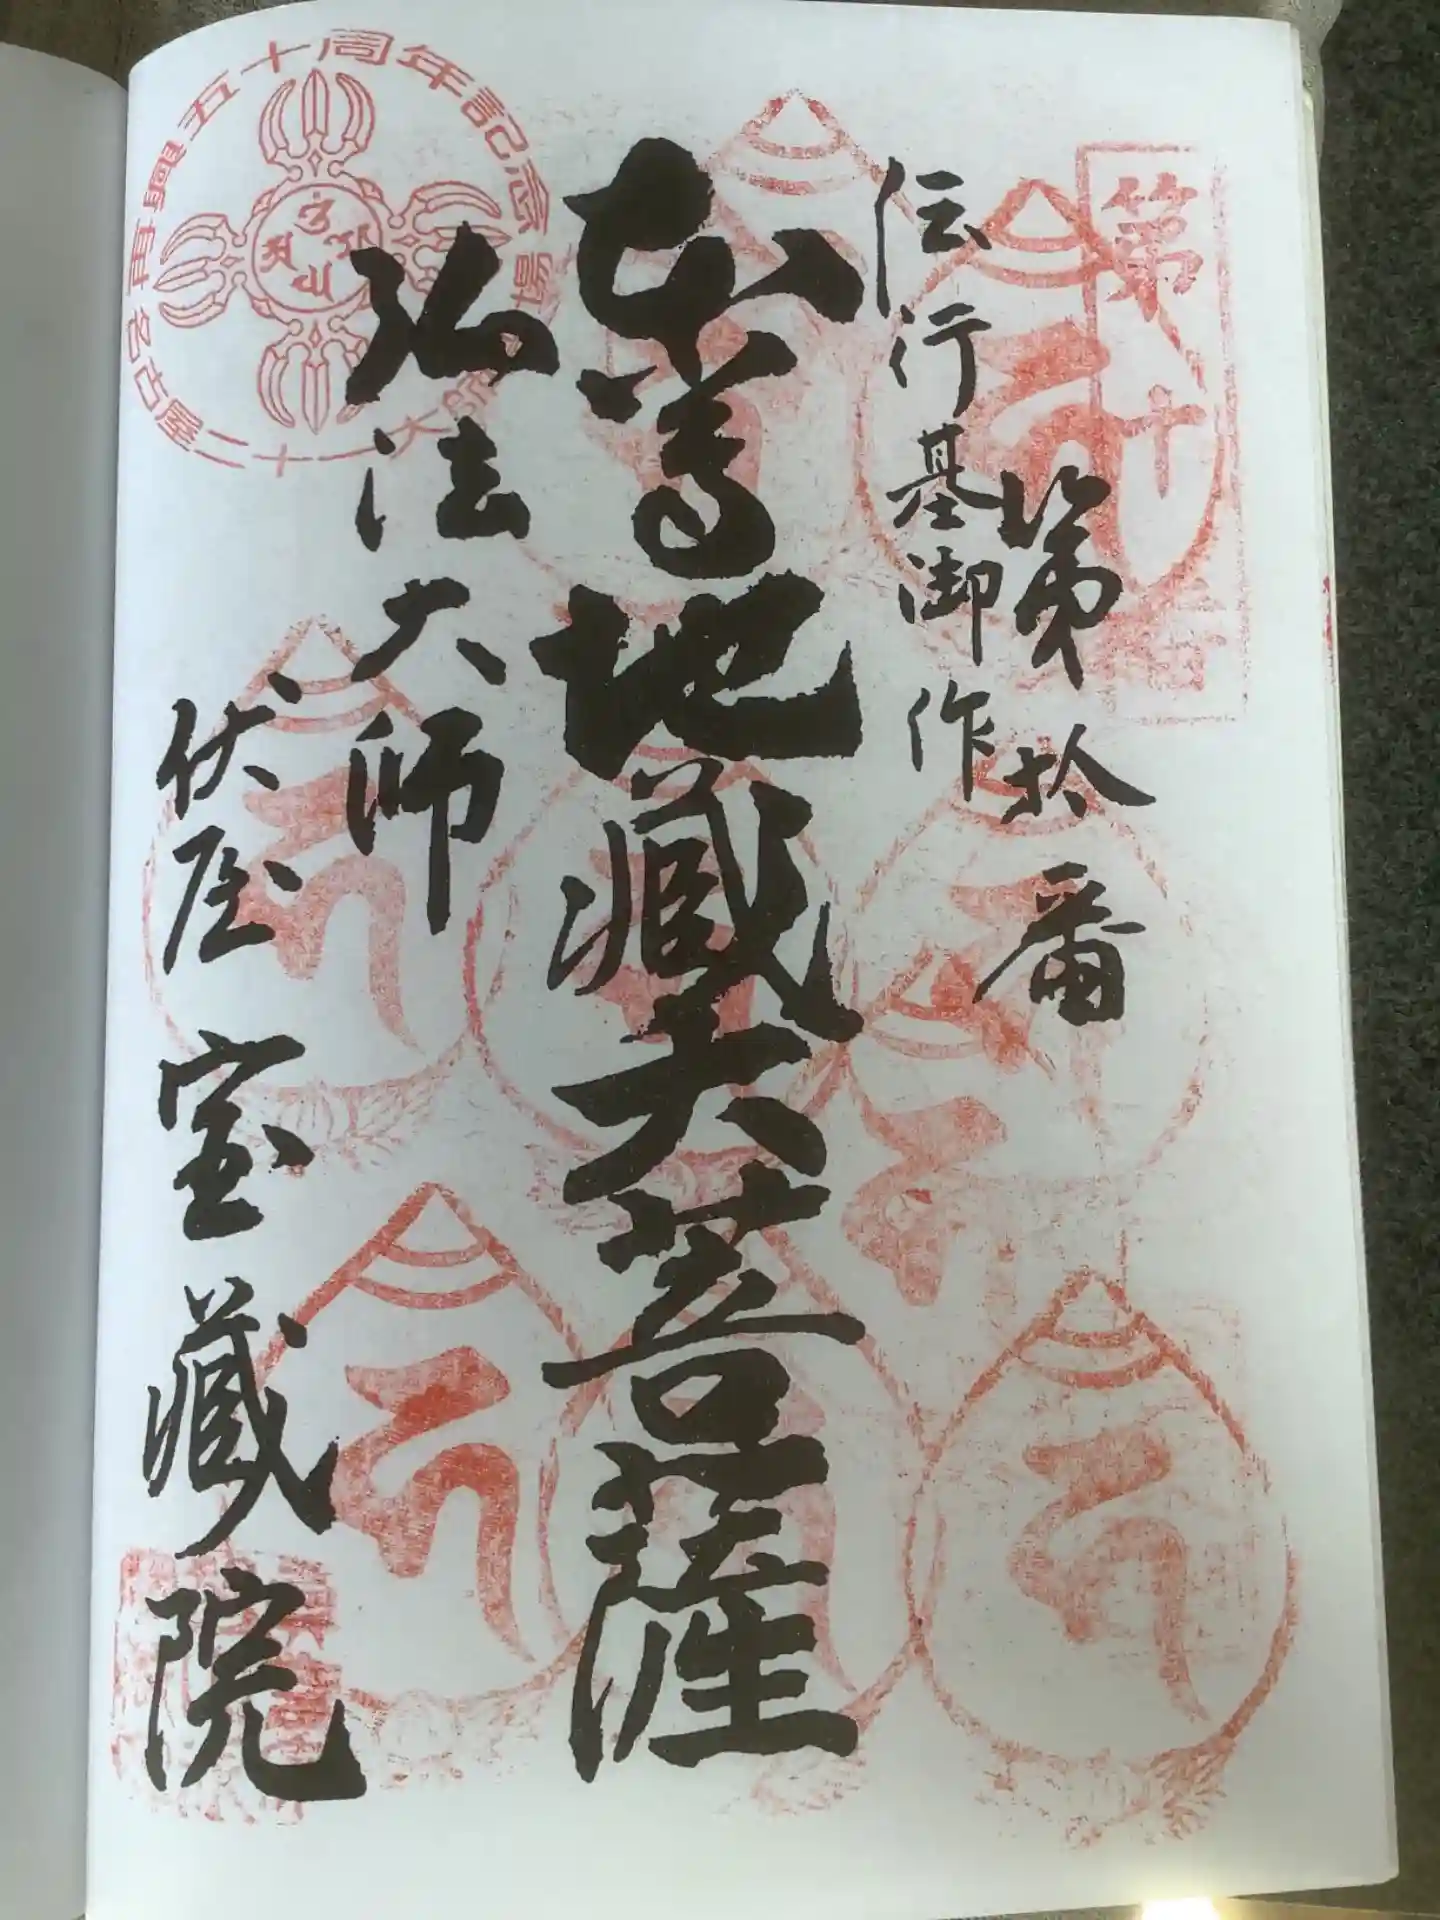 第十
第拾番
伝行基御作
本尊地蔵大菩薩
弘法大師
伏屋宝蔵院
名古屋二十一大師
五十周年記念